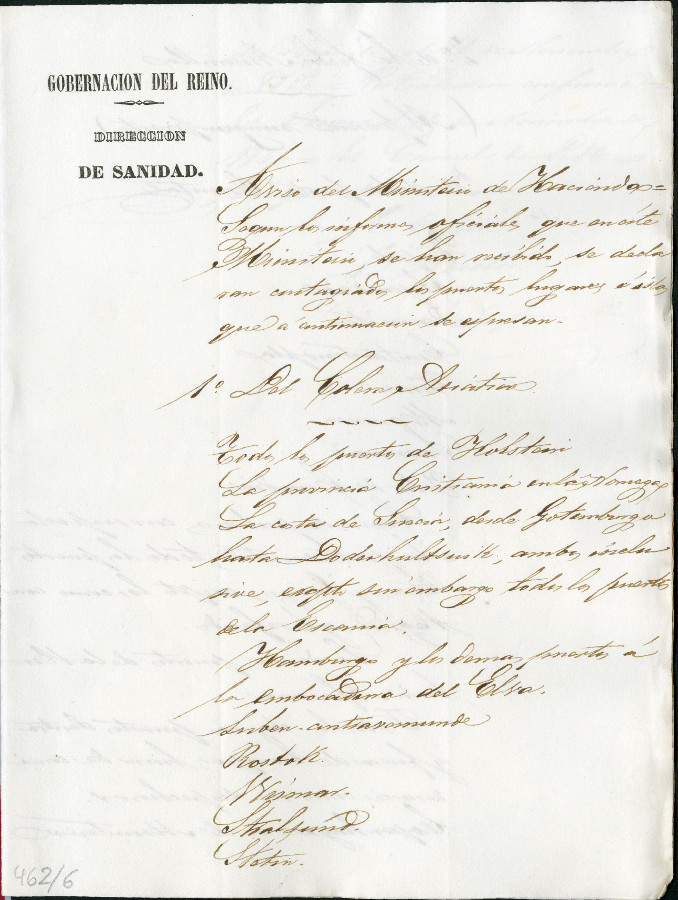 GOBERNACION DEL REINO.
DIRECCION
DE SANIDAD.
Aviso del Ministerio de Hacienda=
Segun los informes oficiales que en este
Ministerio, se han recibido, se decla
ran contagiados los puertos lugares é islas
que á continuacion se espresan.
1º Del Colera Asiático.
Todos los puertos de Holstein
La provincia Cristiania en la Noruega
La costa de Suecia, desde Gotemburgo
hasta Doderhultswik, ambos inclu
sive, esepto sin embargo todos los puertos
de la Escania.
Hamburgo y los demas puertos á
la embocadura del Elva.
Rostok.
Wismar.
Stralsund.
Stetin.
462/6